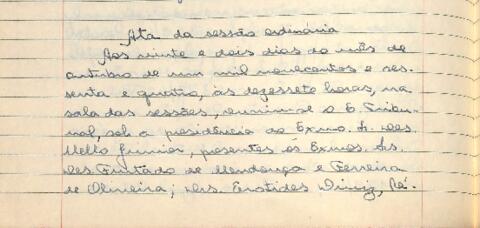 Ata da sessão ordinária
Aos vinte e dois dias do mês de
outubro de um mil novecentos e ses-
senta e quatro, às dezessete horas, na
sala das sessões, reuniu-se o E. Tribu-
nal, sob a presidência do Exmo. Sr. Des.
Mello Junior, presentes os Exmos. Srs.
Des. Furtado de Mendonça e Ferreira
de Oliveira; Drs. Erotides Diniz, Ré-